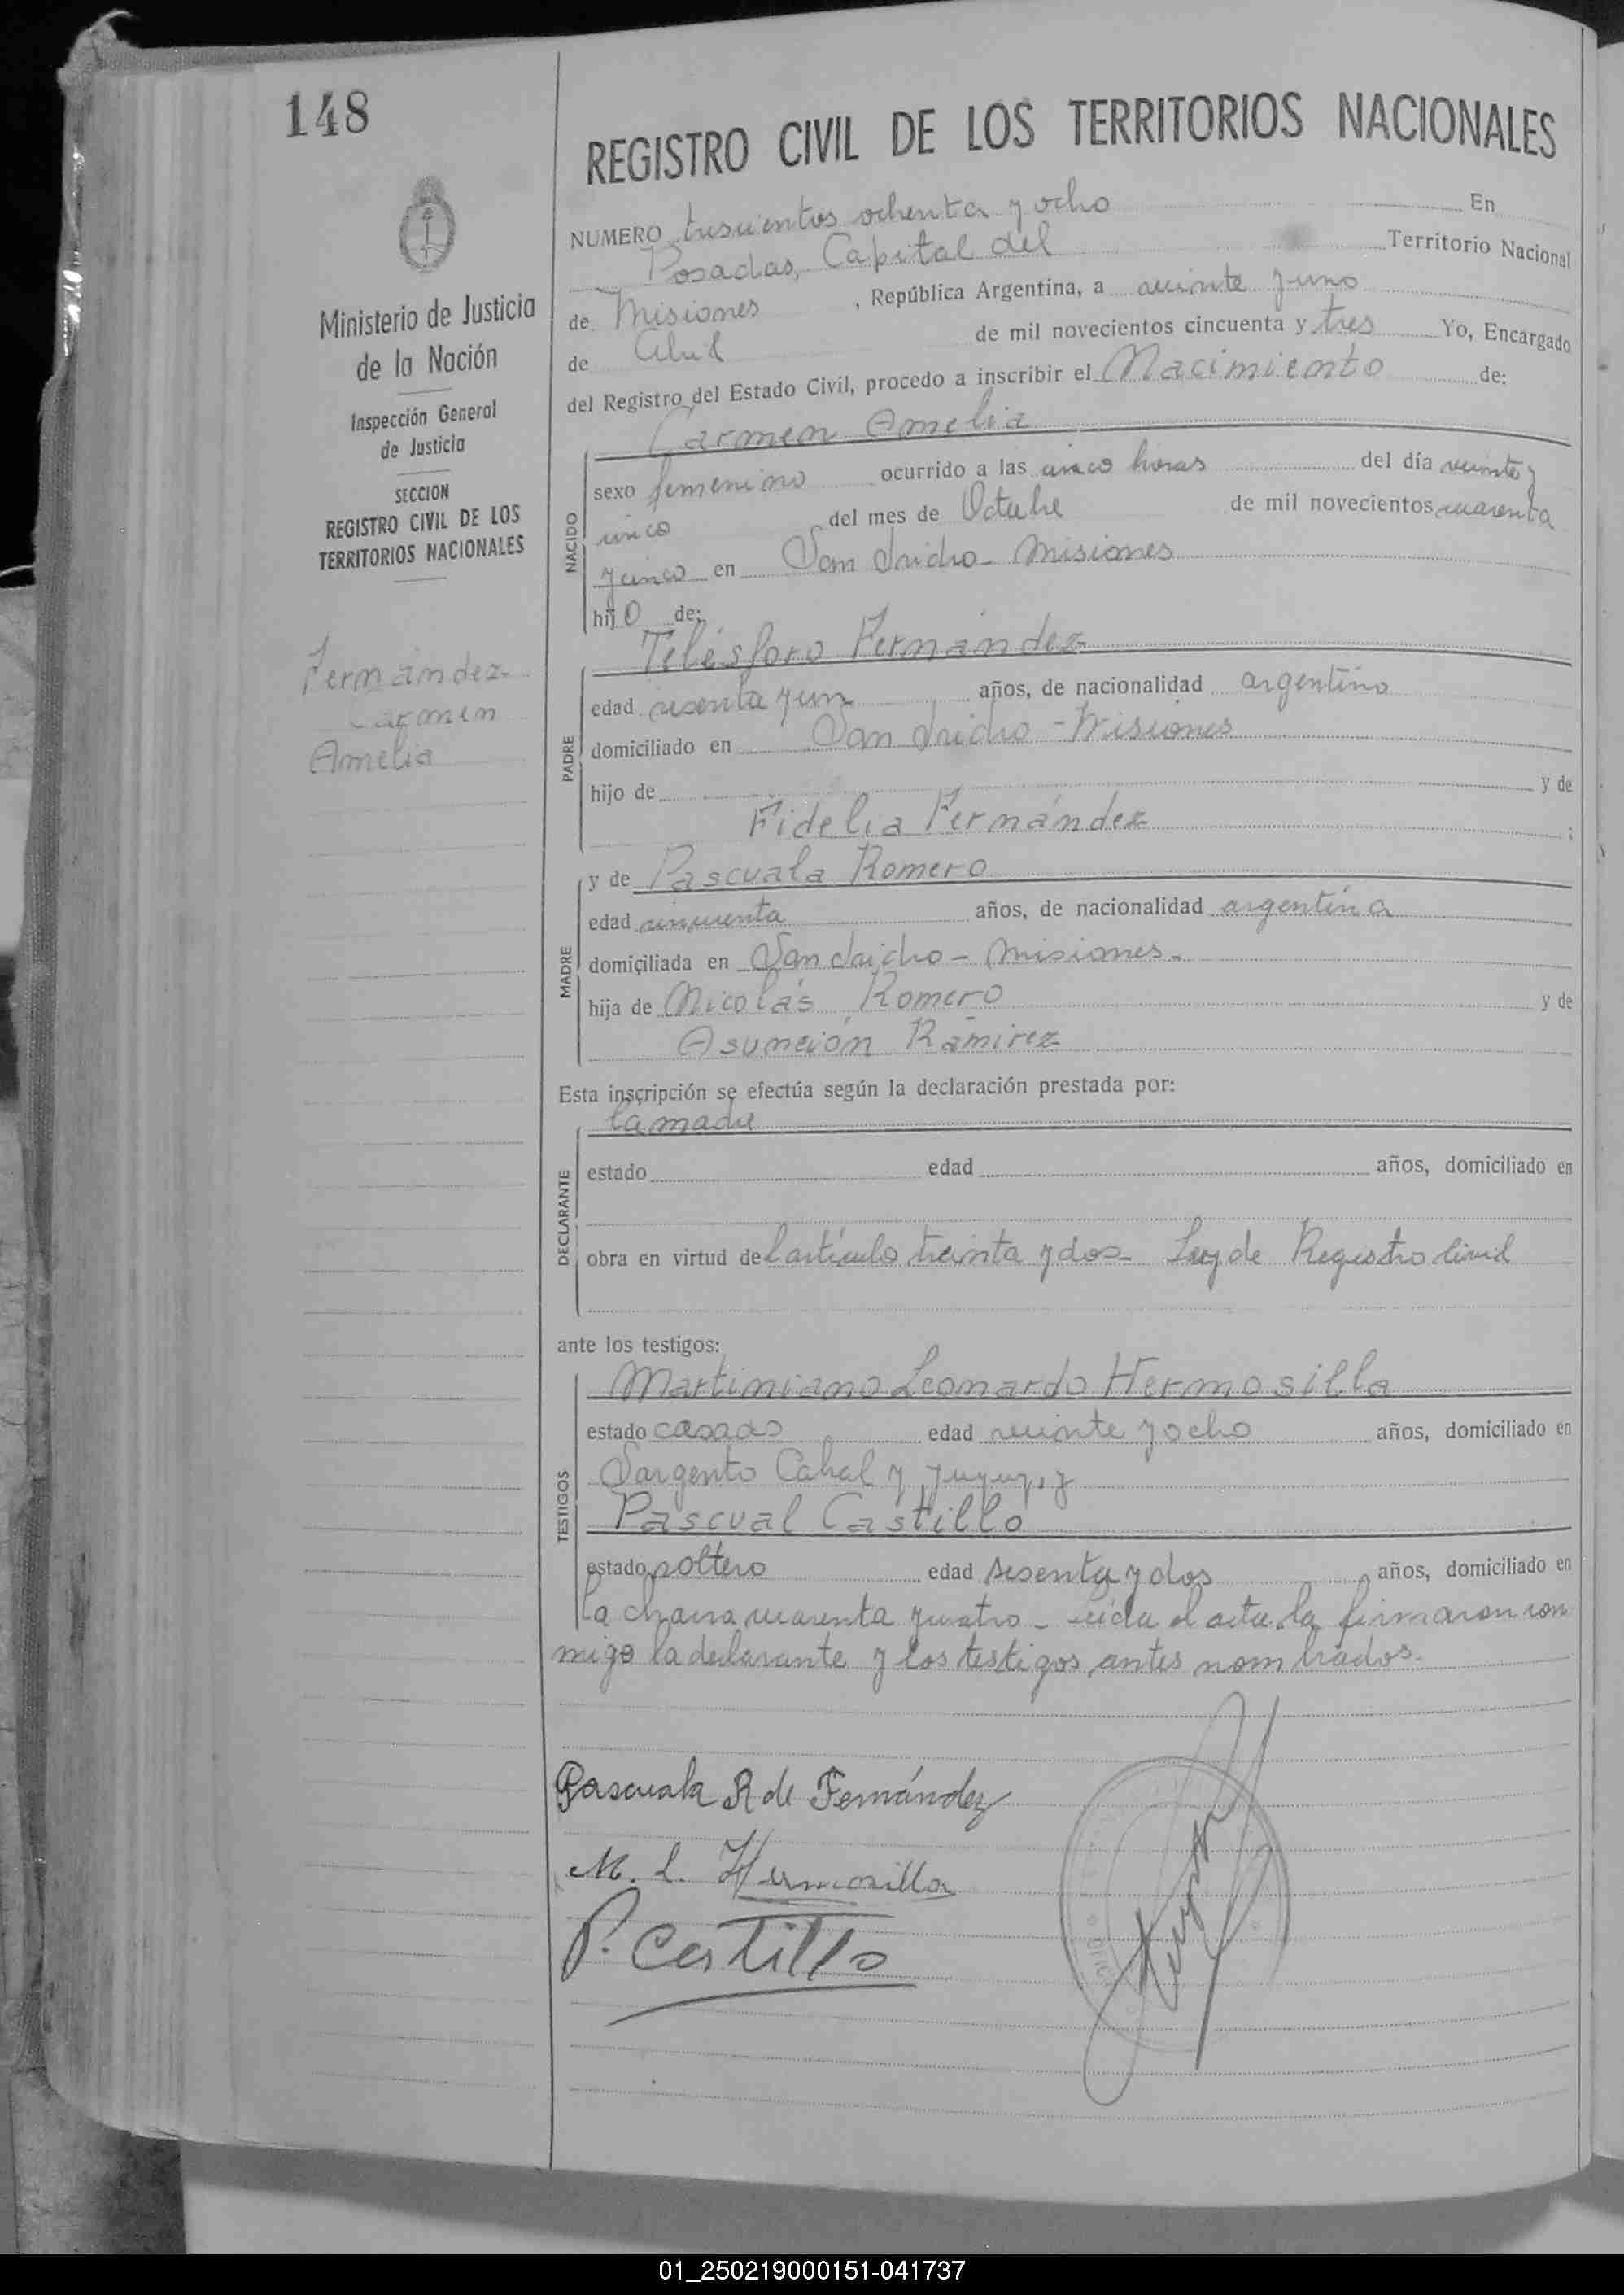 148
Ministerio de Justicia
de la Nación
Inspección General
de Justicia
SECCION
REGISTRO CIVIL DE LOS
TERRITORIOS NACIONALES
Fernández
Carmen
Amelia
REGISTRO CIVIL DE LOS TERRITORIOS NACIONALES
NUMERO trescientos ochenta y ocho En
Posadas, Capital del Territorio Nacional
de Misiones, República Argentina, a veinte y uno
de Abril de mil novecientos cincuenta y tres Yo, Encargado
del Registro del Estado Civil, procedo a inscribir el Nacimiento de:
Carmen Amelia
NACIDO
sexo femenino ocurrido a las cinco horas del día veinte y
cinco del mes de Octubre de mil novecientos cuarenta
y cinco en San Isidro - Misiones
hijo de:
Telésforo Fernández
PADRE
edad sesenta y un años, de nacionalidad argentino
domiciliado en San Isidro - Misiones
hijo de y de
Fidelia Fernández ;
y de Pascuala Romero
MADRE
edad cincuenta años, de nacionalidad argentina
domiciliada en San Isidro - Misiones -
hija de Nicolás Romero y de
Asunción Ramirez
Esta inscripción se efectúa según la declaración prestada por:
la madre
DECLARANTE
estado edad años, domiciliado en
obra en virtud del artículo treinta y dos - Ley de Registro Civil
ante los testigos:
Martiniano Leonardo Hermosilla
TESTIGOS
estado casado edad veinte y ocho años, domiciliado en
Sargento Cabral y Jujuy, y
Pascual Castillo
estado soltero edad sesenta y dos años, domiciliado en
la chacra cuarenta y cuatro - Leída el acta, la firmaron con
migo la declarante y los testigos antes nombrados.
Pascuala R de Fernández
M. L. Hermosilla
P. Castillo
01_250219000151-041737